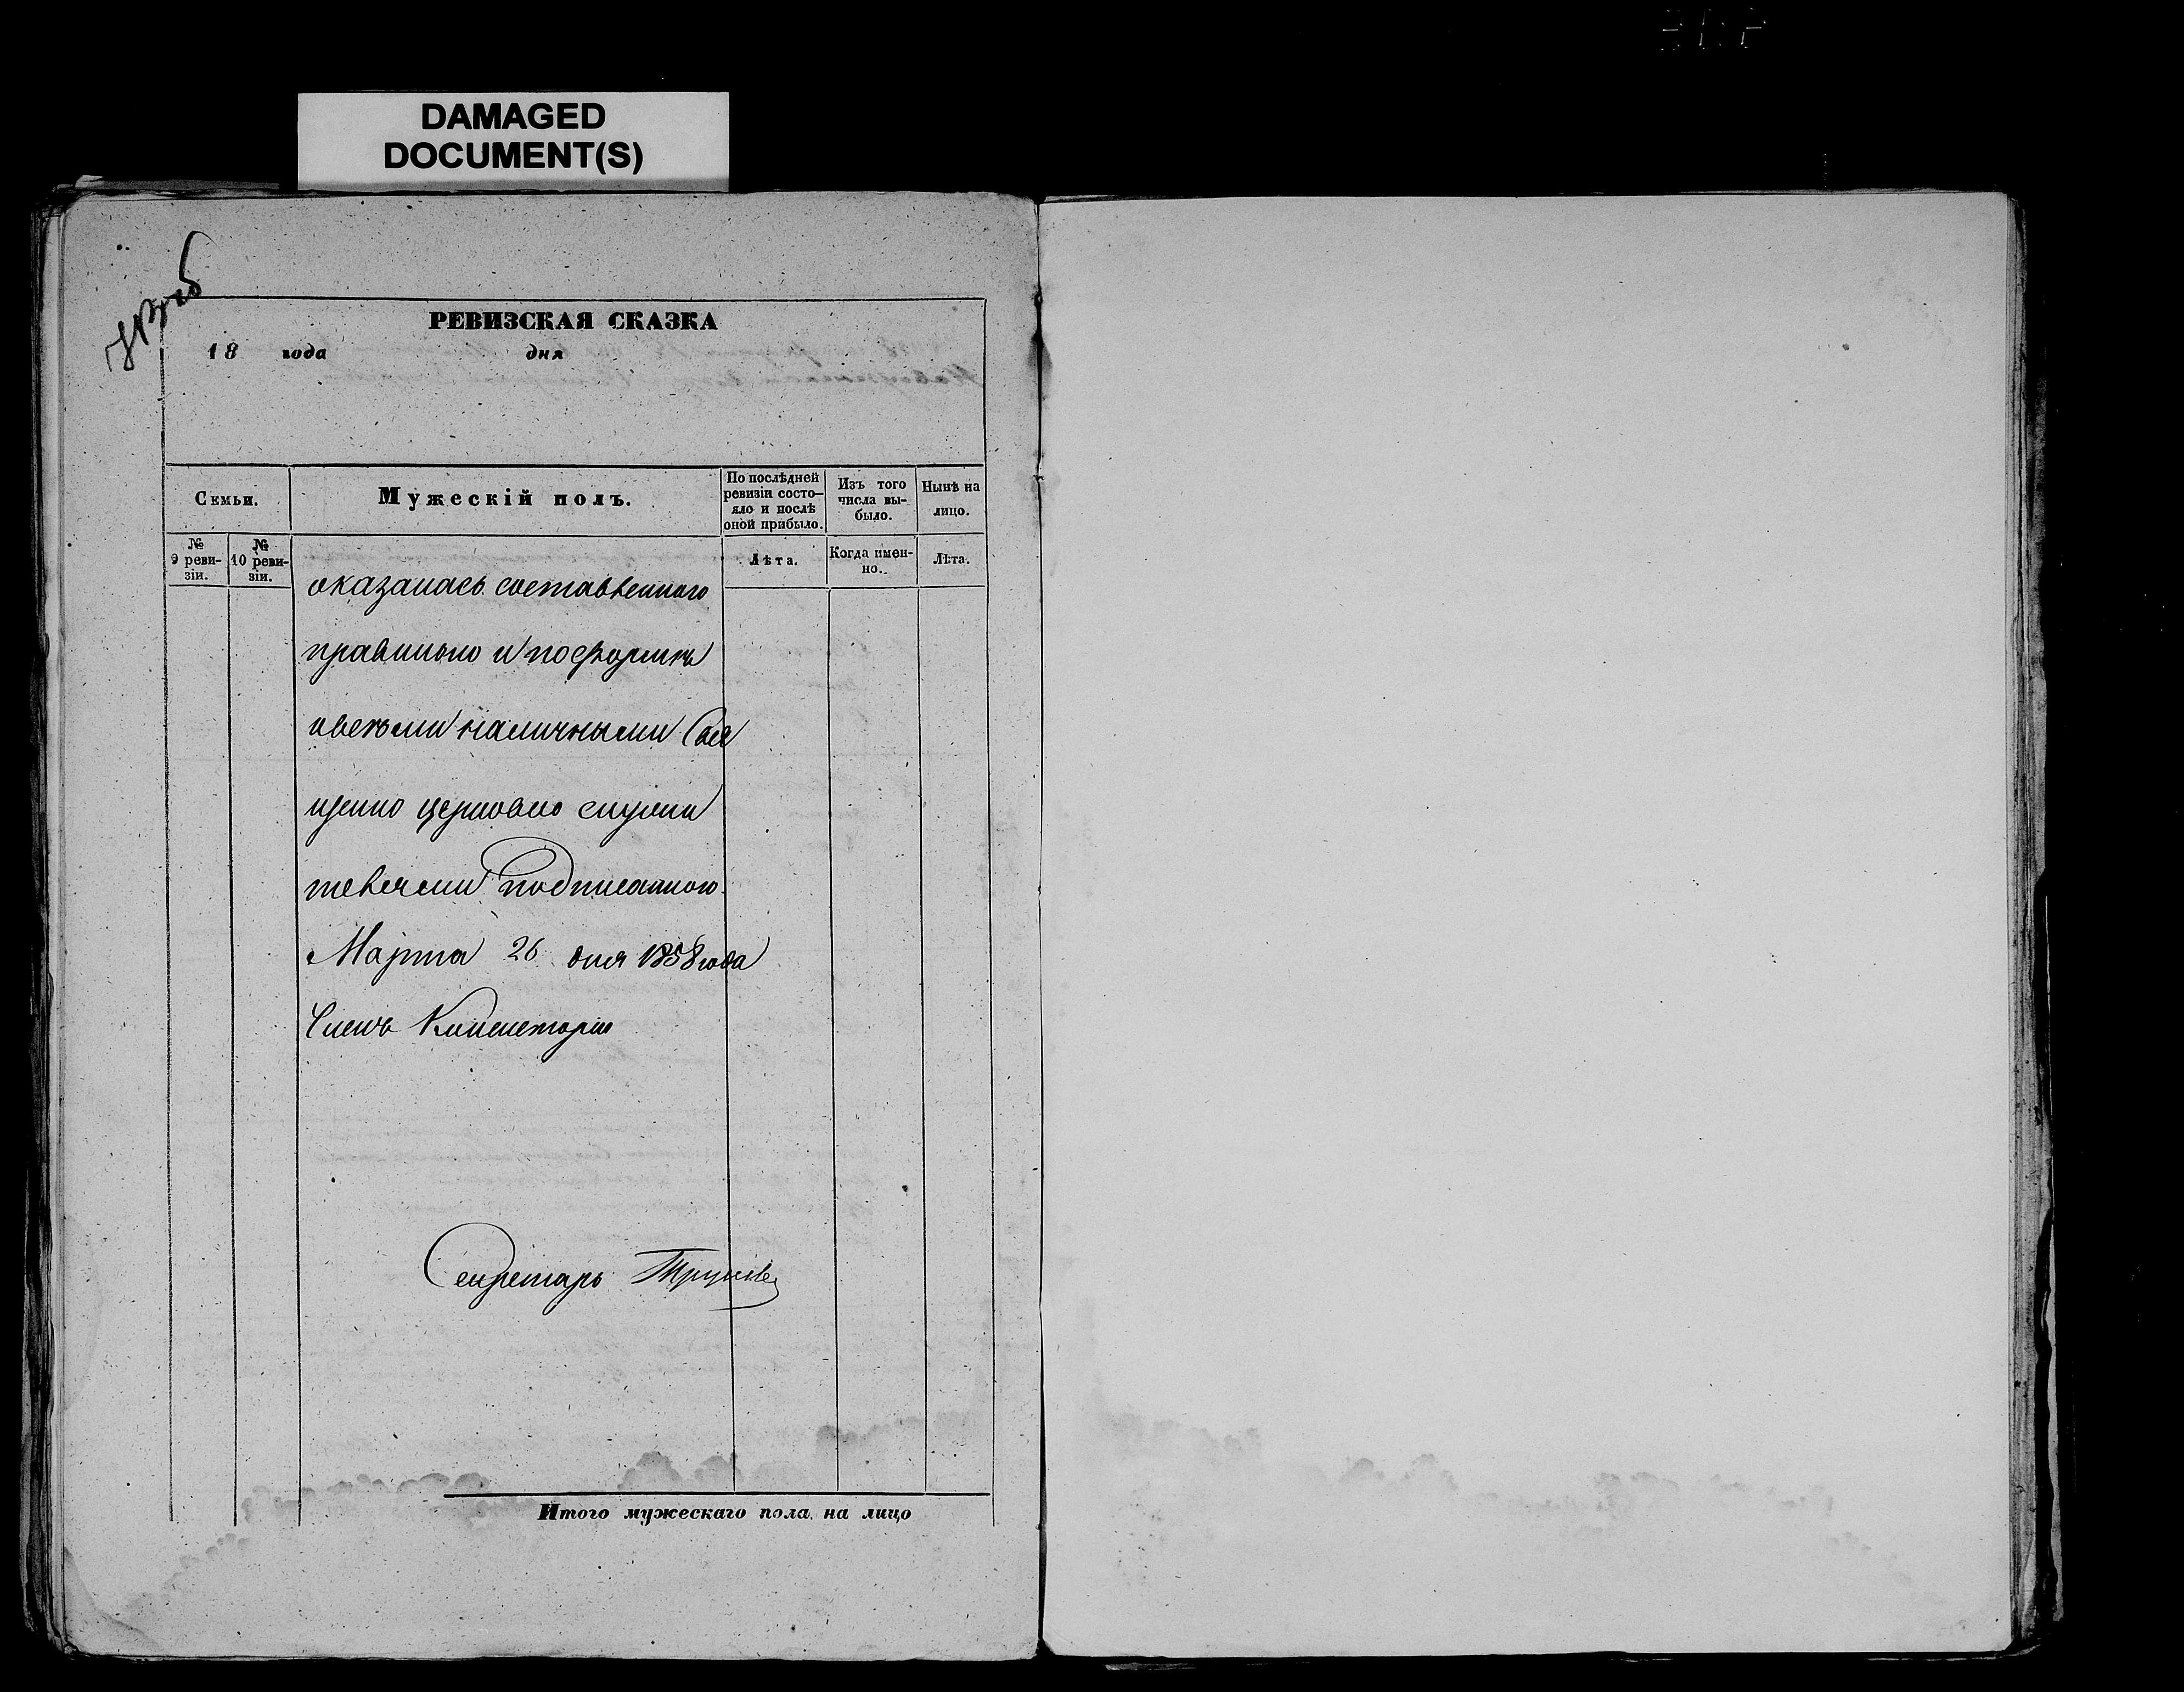 DAMAGED
DOCUMENT(S)
РЕВИЗСКАЯ СКАЗКА
18 года дня
Семьи.
Мужескій полъ.
По послѣдней ревизіи состо-яло и послѣ оной прибыло.
Изъ того числа вы-было.
Нынѣ на лицо.
№ 9 реви-зіи.
№ 10 реви-зіи.
Лѣта.
Когда имен-но.
Лѣта.
оказалась составленного
правильно и по формѣ
и всѣми наличными Свя
щенно церковно служи
телями подписанною
Марта 26 дня 1858 года
Членъ Консисторіи
Секретарь
Итого мужескаго пола на лицо